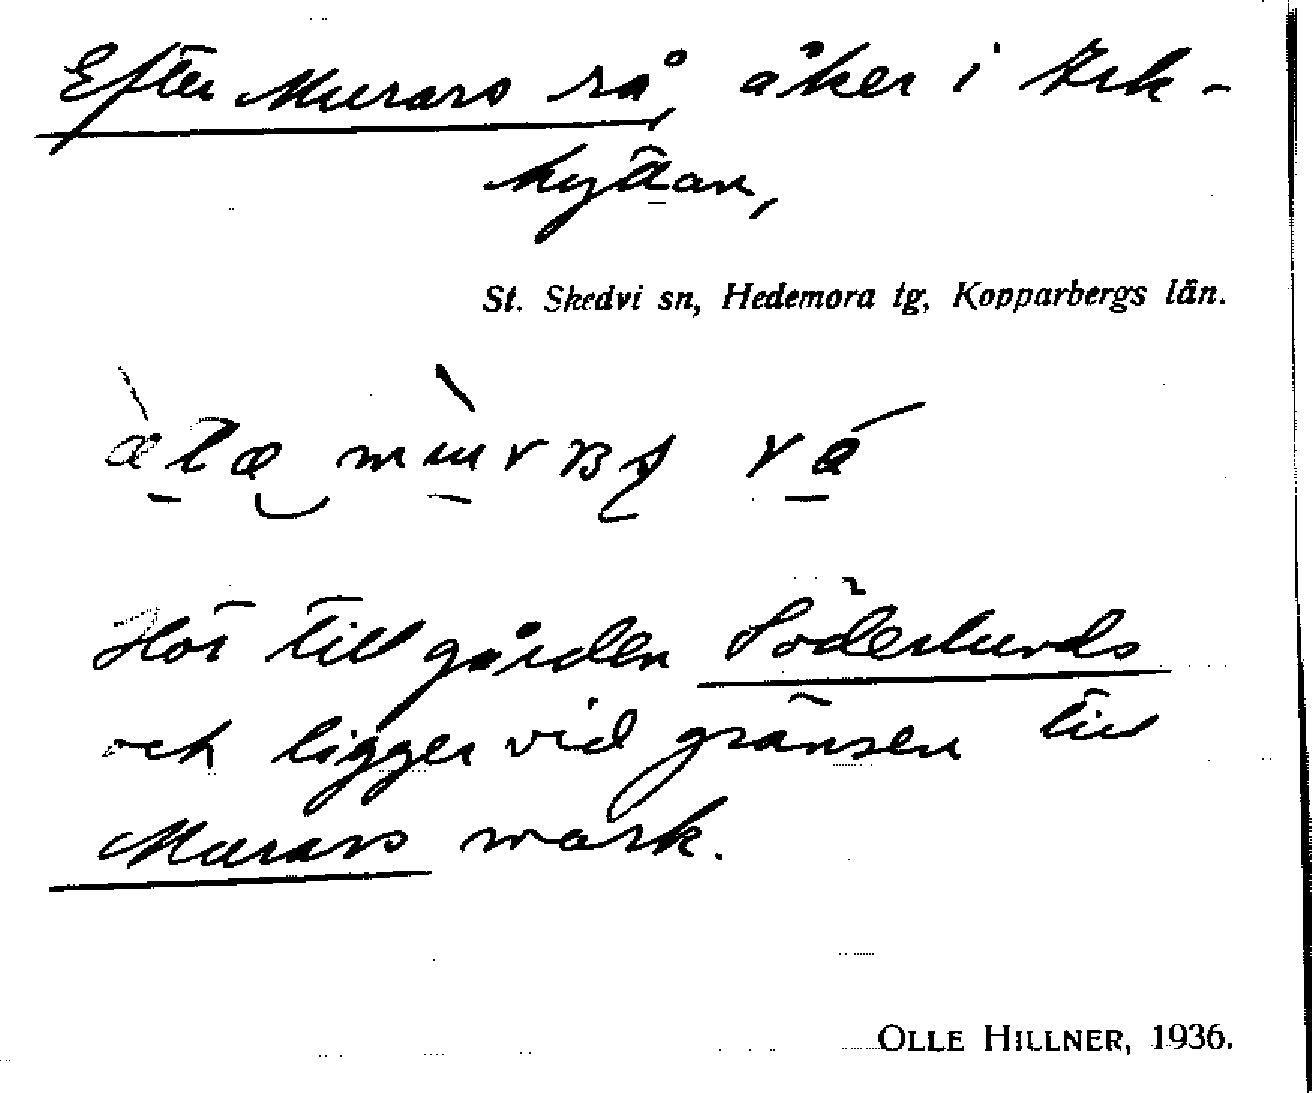 Efter Murars rå, åker i Kyrk-
bytån,
St. Skedvi sn, Hedemora tg, Kopparbergs län.
Hör till gården Söderlunds
och ligger vid gränsen till
Murars mark.
OLLE HILLNER, 1936.